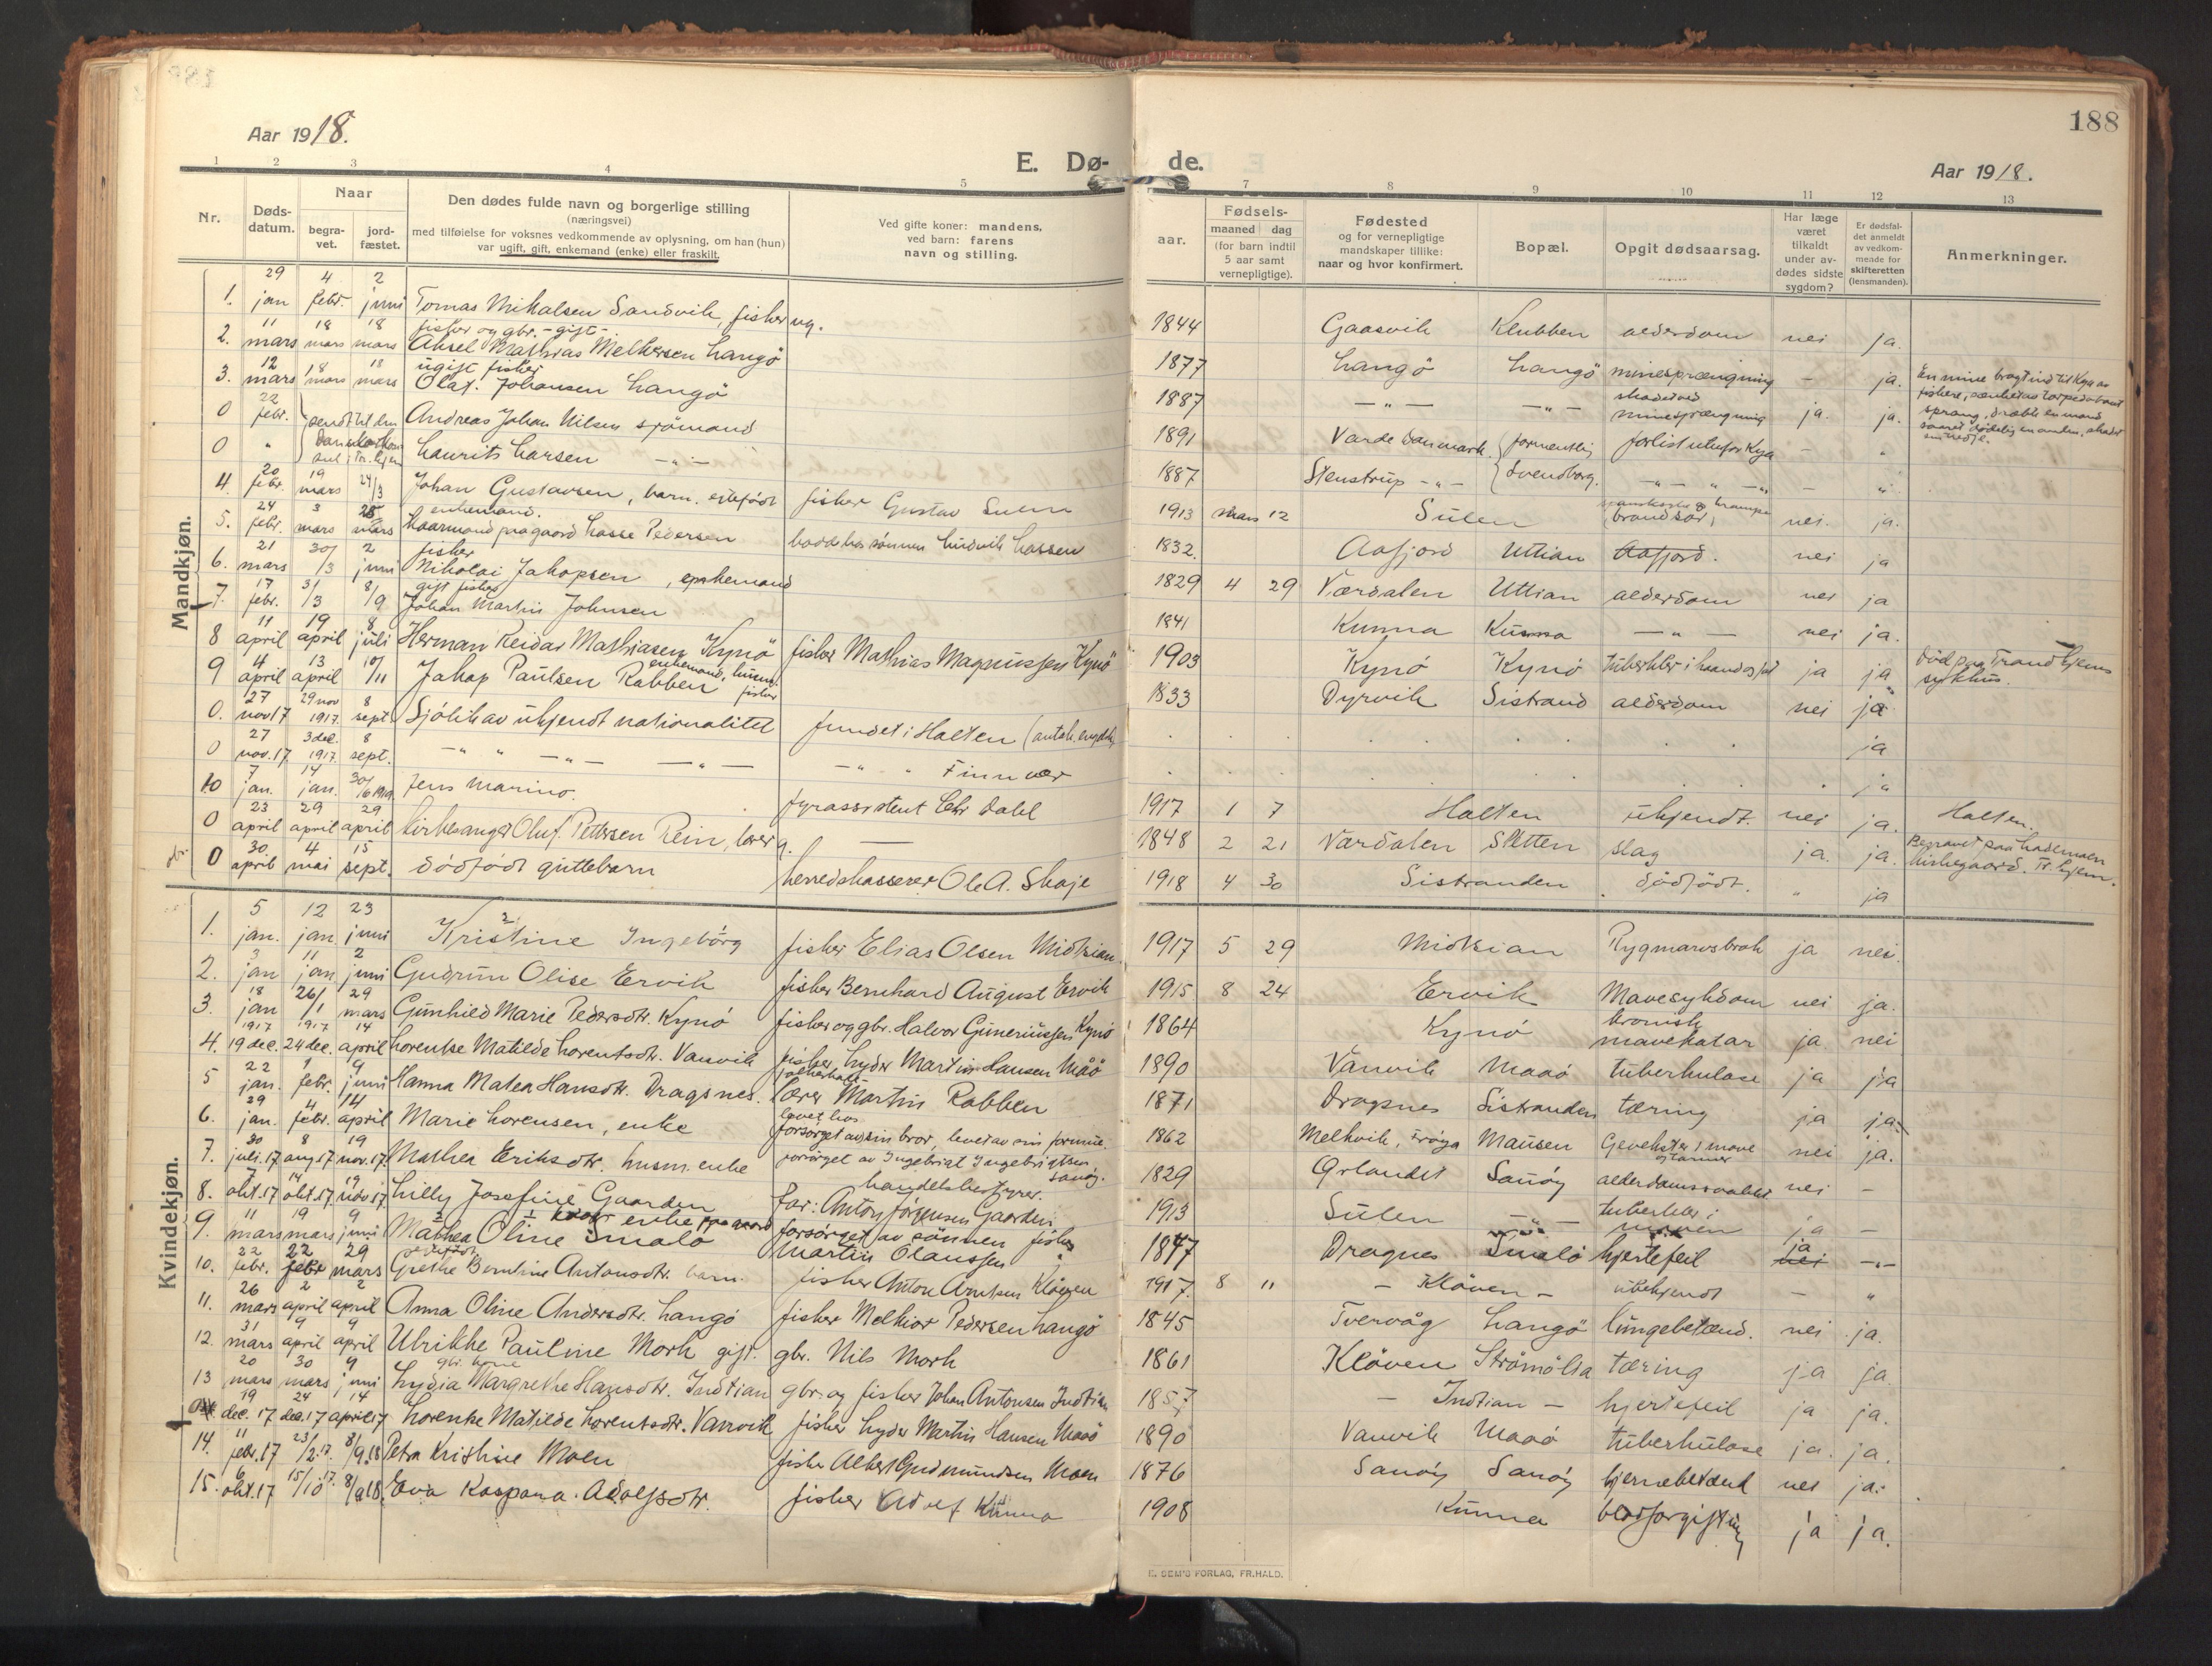 188
Aar 1918.
Aar 1918.
E. Dø-
de.
1 2 3 4 5 7 8 9 10 11 12 13
Nr.
Døds-
datum.
Naar
begra-
vet.
jord-
fæstet.
Den dødes fulde navn og borgerlige stilling
(næringsvei)
med tilføielse for voksnes vedkommende av oplysning, om han (hun)
var ugift, gift, enkemand (enke) eller fraskilt.
Ved gifte koner: mandens,
ved barn: farens
navn og stilling.
aar.
Fødsels-
maaned dag
(for barn indtil
5 aar samt
vernepligtige).
Fødested
og for vernepligtige
mandskaper tillike:
naar og hvor konfirmert.
Bopæl.
Opgit dødsaarsag.
Har læge
været
tilkaldt
under av-
dødes sidste
sygdom?
Er dødsfal-
det anmeldt
av vedkom-
mende for
skifteretten
(lensmanden).
Anmerkninger.
Mandkjøn.
1. 29 jan 4 febr. 2 juni Tomas Mikalsen Sandvik, fisker ug. 1844 Gaasvik Klubben alderdom nei ja.
2. 11 mars 18 mars 18 mars fisker og gbr. - gift - Aksel Mathias Melkersen Langö 1877 Langö Langö minesprængning - ja.
3. 12 mars 18 mars 18 mars ugift fisker Olaf Johansen Langö 1887 -"- -"- skadet ved minesprængning ja. ja.
En mine bragt ind til Kya av
fiskere,
sprang, dræbte en mand
saaret dødelig en anden,
0 22 febr. sendt til Andreas Johan Nilsen sjömand 1891 Varde Danmark. formentlig forlist utenfor Kya - "
0 " Laurits Larsen -"- 1887 Stenstrup -"- Svendborg. -"- " -"- - "
4. 20 febr. 19 mars 24/3 Johan Gustavsen, barn. egtefödt fisker Gustav Sulen 1913 mars 12 Sulen nei. ja.
5. 24 febr. 3 mars 25 mars enkemand. Kaarmand paa gaard Lasse Pedersen hos sønnen Ludvik Lassen 1832. Aafjord Uttian Aafjord. nei ja
6. 21 mars 30/3 2 juni fisker Nikolai Jakopsen, enkemand 1829 4 29 Værdalen Uttian alderdom nei ja
7. 17 febr. 31/3 8/9 gift fisker Johan Martin Johnsen 1841 Kunna Kunna -"- nei ja.
8 11 april 19 april 8 juli Herman Reidar Mathiasen Kynö fisker Mathias Magnussen Kynö 1903 Kynö Kynö tuberkler i haand og fod ja ja Död paa Trondhjems sykhus.
9 4 april 13 april 10/11 Jakop Paulsen Rabben enkemand, fisker 1833 Dyrvik Sistrand alderdom nei ja
0. 27 nov 17 29 nov 1917. 8 sept. Sjölik av ukjendt nationalitet fundet i Halten (antak. engelsk) ja
0 27 nov. 17 3 dec. 1917. 8 sept. -" " -"- -"- -" " Finnvær ja
10 7 jan. 14 jan. 30/6 1919. Jens Marino. fyrassistent Chr Dahl 1917 1 7 Halten ukjendt. nei ja. Halten.
0 23 april 29 april 29 april kirkesanger Oluf Pettersen Rein, lærer g. — 1848 2 21 Værdalen Sletten slag ja. ja. Begravet paa Lademoen kirkegaard. Tr. hjem.
0 30 april 4 mai 15 sept. dödfödt guttebarn herredskasserer Ole A. Skaje 1918 4 30 Sistranden dödfödt. " ja
Kvindekjøn.
1. 5 jan. 12 jan. 23 juni Kristine Ingebörg fisker Elias Olsen Midtsian. 1917 5 29 Midtsian Rygmarvsbrok ja nei.
2. 3 jan 11 jan 2 juni Gudrun Olise Ervik fisker Bernhard August Ervik 1915 8 24 Ervik Mavesykdom nei ja.
3. 18 jan 26/1 29 mars Gunhild Marie Pedersdtr. Kynö fisker og gbr. Halvor Guneriussen Kynö 1864 Kynö kronisk mavekatar ja nei
4. 1917 19 dec. 1917 24 dec. 14 april Lorentse Matilde Lorentsdtr. Vanvik fisker Lyder Martin Hansen Måö 1890 Vanvik Maaö tuberkulose ja ja
5 22 jan. 1 febr. 9 juni Hanna Matea Hansdtr. Dragsnes. lærer Martin Rabben 1871 Dragsnes Sistranden tæring ja ja.
6. 29 jan. 4 febr. 14 april Marie Lorensen, enke forsörget av sin bror, levet av sin formue. 1862 Melkvik, Fröya Mausen Gevekster i mave nei ja.
7. 30 juli. 17 8 aug 17 19 nov. 17. Mathea Eriksdtr. husm. enke forsörget av Ingebrigt Ingebrigtsen Sanöy. 1829 Örlandet Sanöy alderdomssvakhet nei -
8. 7 okt. 17 14 okt. 17 19 nov 17 Lilly Josefine Gaarden handelsbestyrer. far: Anton Jörgensen Gaarden 1913 Sulen -"- tuberkler i ja -
9. 11 mars 19 mars 9 juni Mathea Oline Smalö forsörget av sönnen fisker Martin Olaussen 1847 Dragnes Smalö hjertefeil nei ja -"-
10. 22 febr. 22 febr 29 mars Grethe Berntine Antonsdtr. barn. fisker Anton Arntsen Klöven 1917. 8 11 - Klöven - ubekjendt - "
11. 26 mars 2 april 2 april Anna Oline Andersdtr. Langö fisker Melkior Pedersen Langö 1845 Tvervåg Langö lungebetænd. nei ja.
12. 31 mars 9 april 9 april Ulrikke Pauline Mork gift. gbr. Nils Mork 1861 Klöven Strömölia tæring ja ja.
13 20 mars 30 mars 9 juni gbr. kone Lydia Margrethe Hansdtr. Indtian gbr. og fisker Johan Antonsen Indtian 1857 - Indtian - hjertefeil ja ja.
19 dec. 17 24 dec. 17 14 april 17 Lorentse Matilde Lorentsdtr. Vanvik fisker Lyder Martin Hansen Maaö 1890 Vanvik Maaö tuberkulose ja. ja.
14. 11 febr. 17 23/2. 17. 8/9 18 Petra Kristine Moen fisker Albert Gudmundsen Moen 1876 Sanöy Sanöy hjernebetænd nei ja.
15. 6 okt. 17 15/10 17. 8/9 18. Eva Kaspara Adolfsdtr. fisker Adolf Kunna 1908 Kunna blodforgiftning ja ja.
E. SEM'S FORLAG, FR.HALD.